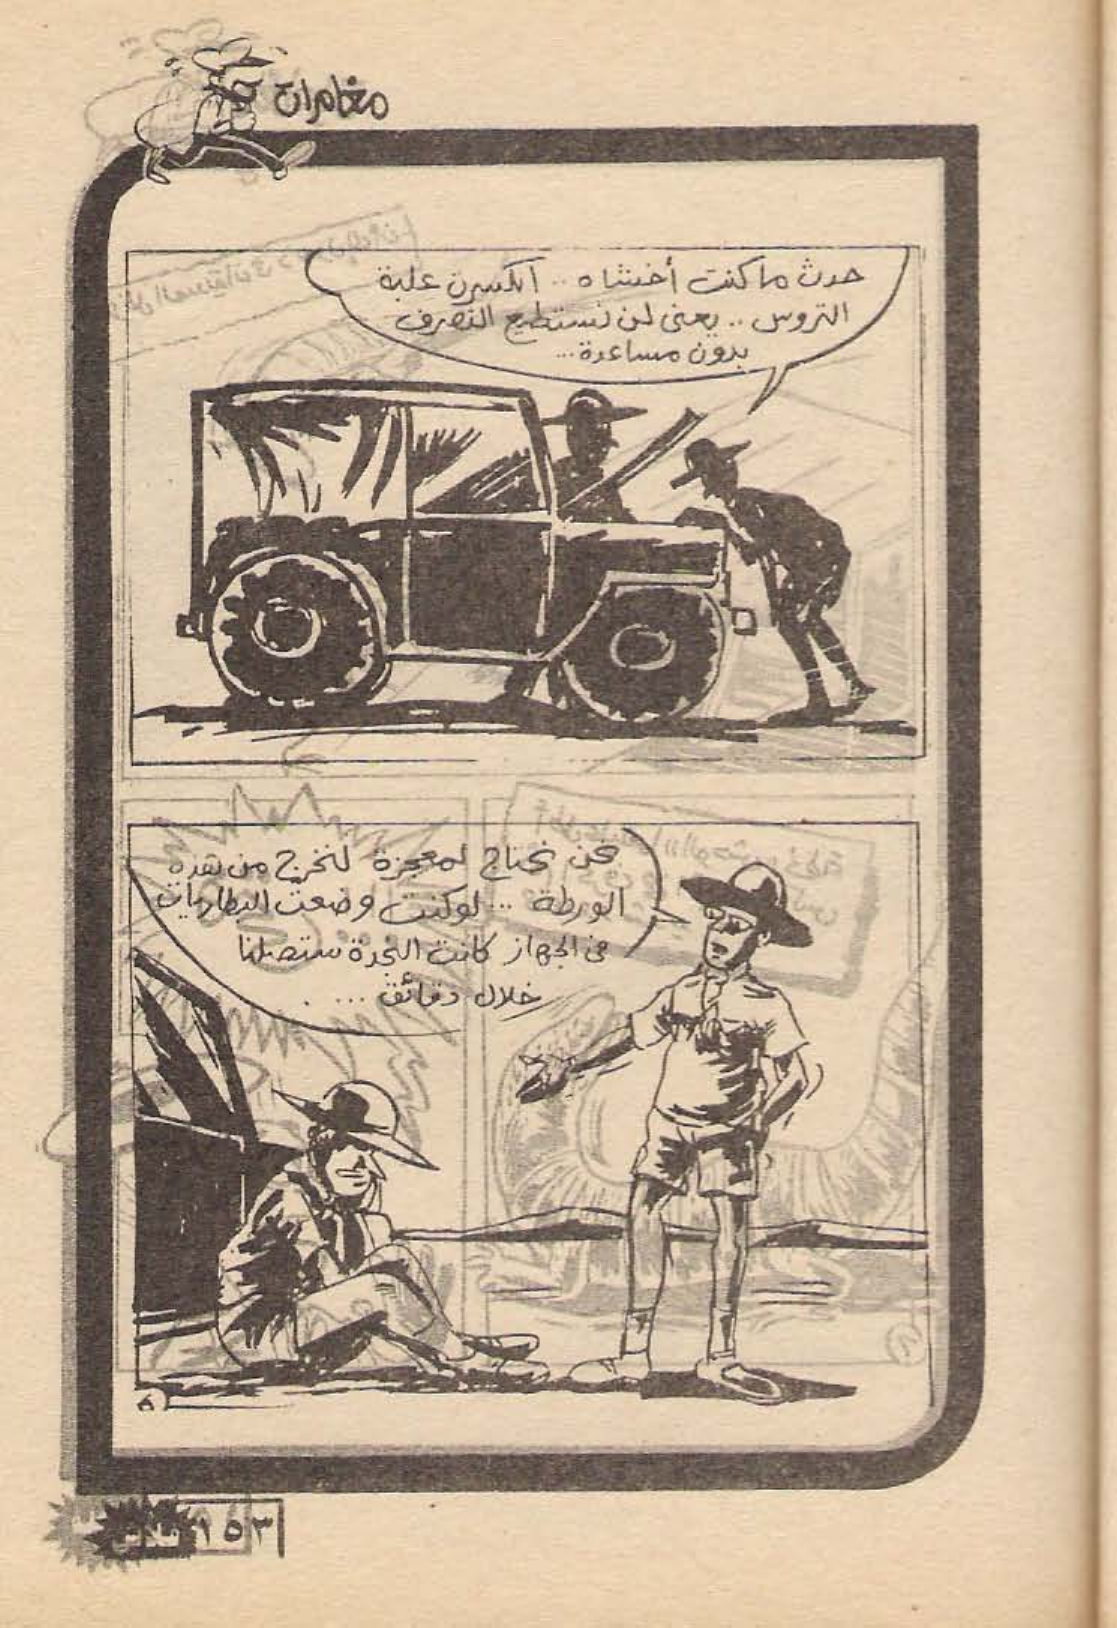 مغامرات
حدث ما كنت أخشاه .. انكسرت علبة
التروس .. يعنى لن نستطيع التصرف
بدون مساعدة...
نحن نحتاج لمعجزة لنخرج من هذه
الورطة ... لو كنت وضعت البطاريات
فى الجهاز كانت النجدة ستصلنا
خلال دقائق ...
٥
١٥٣ فلاش